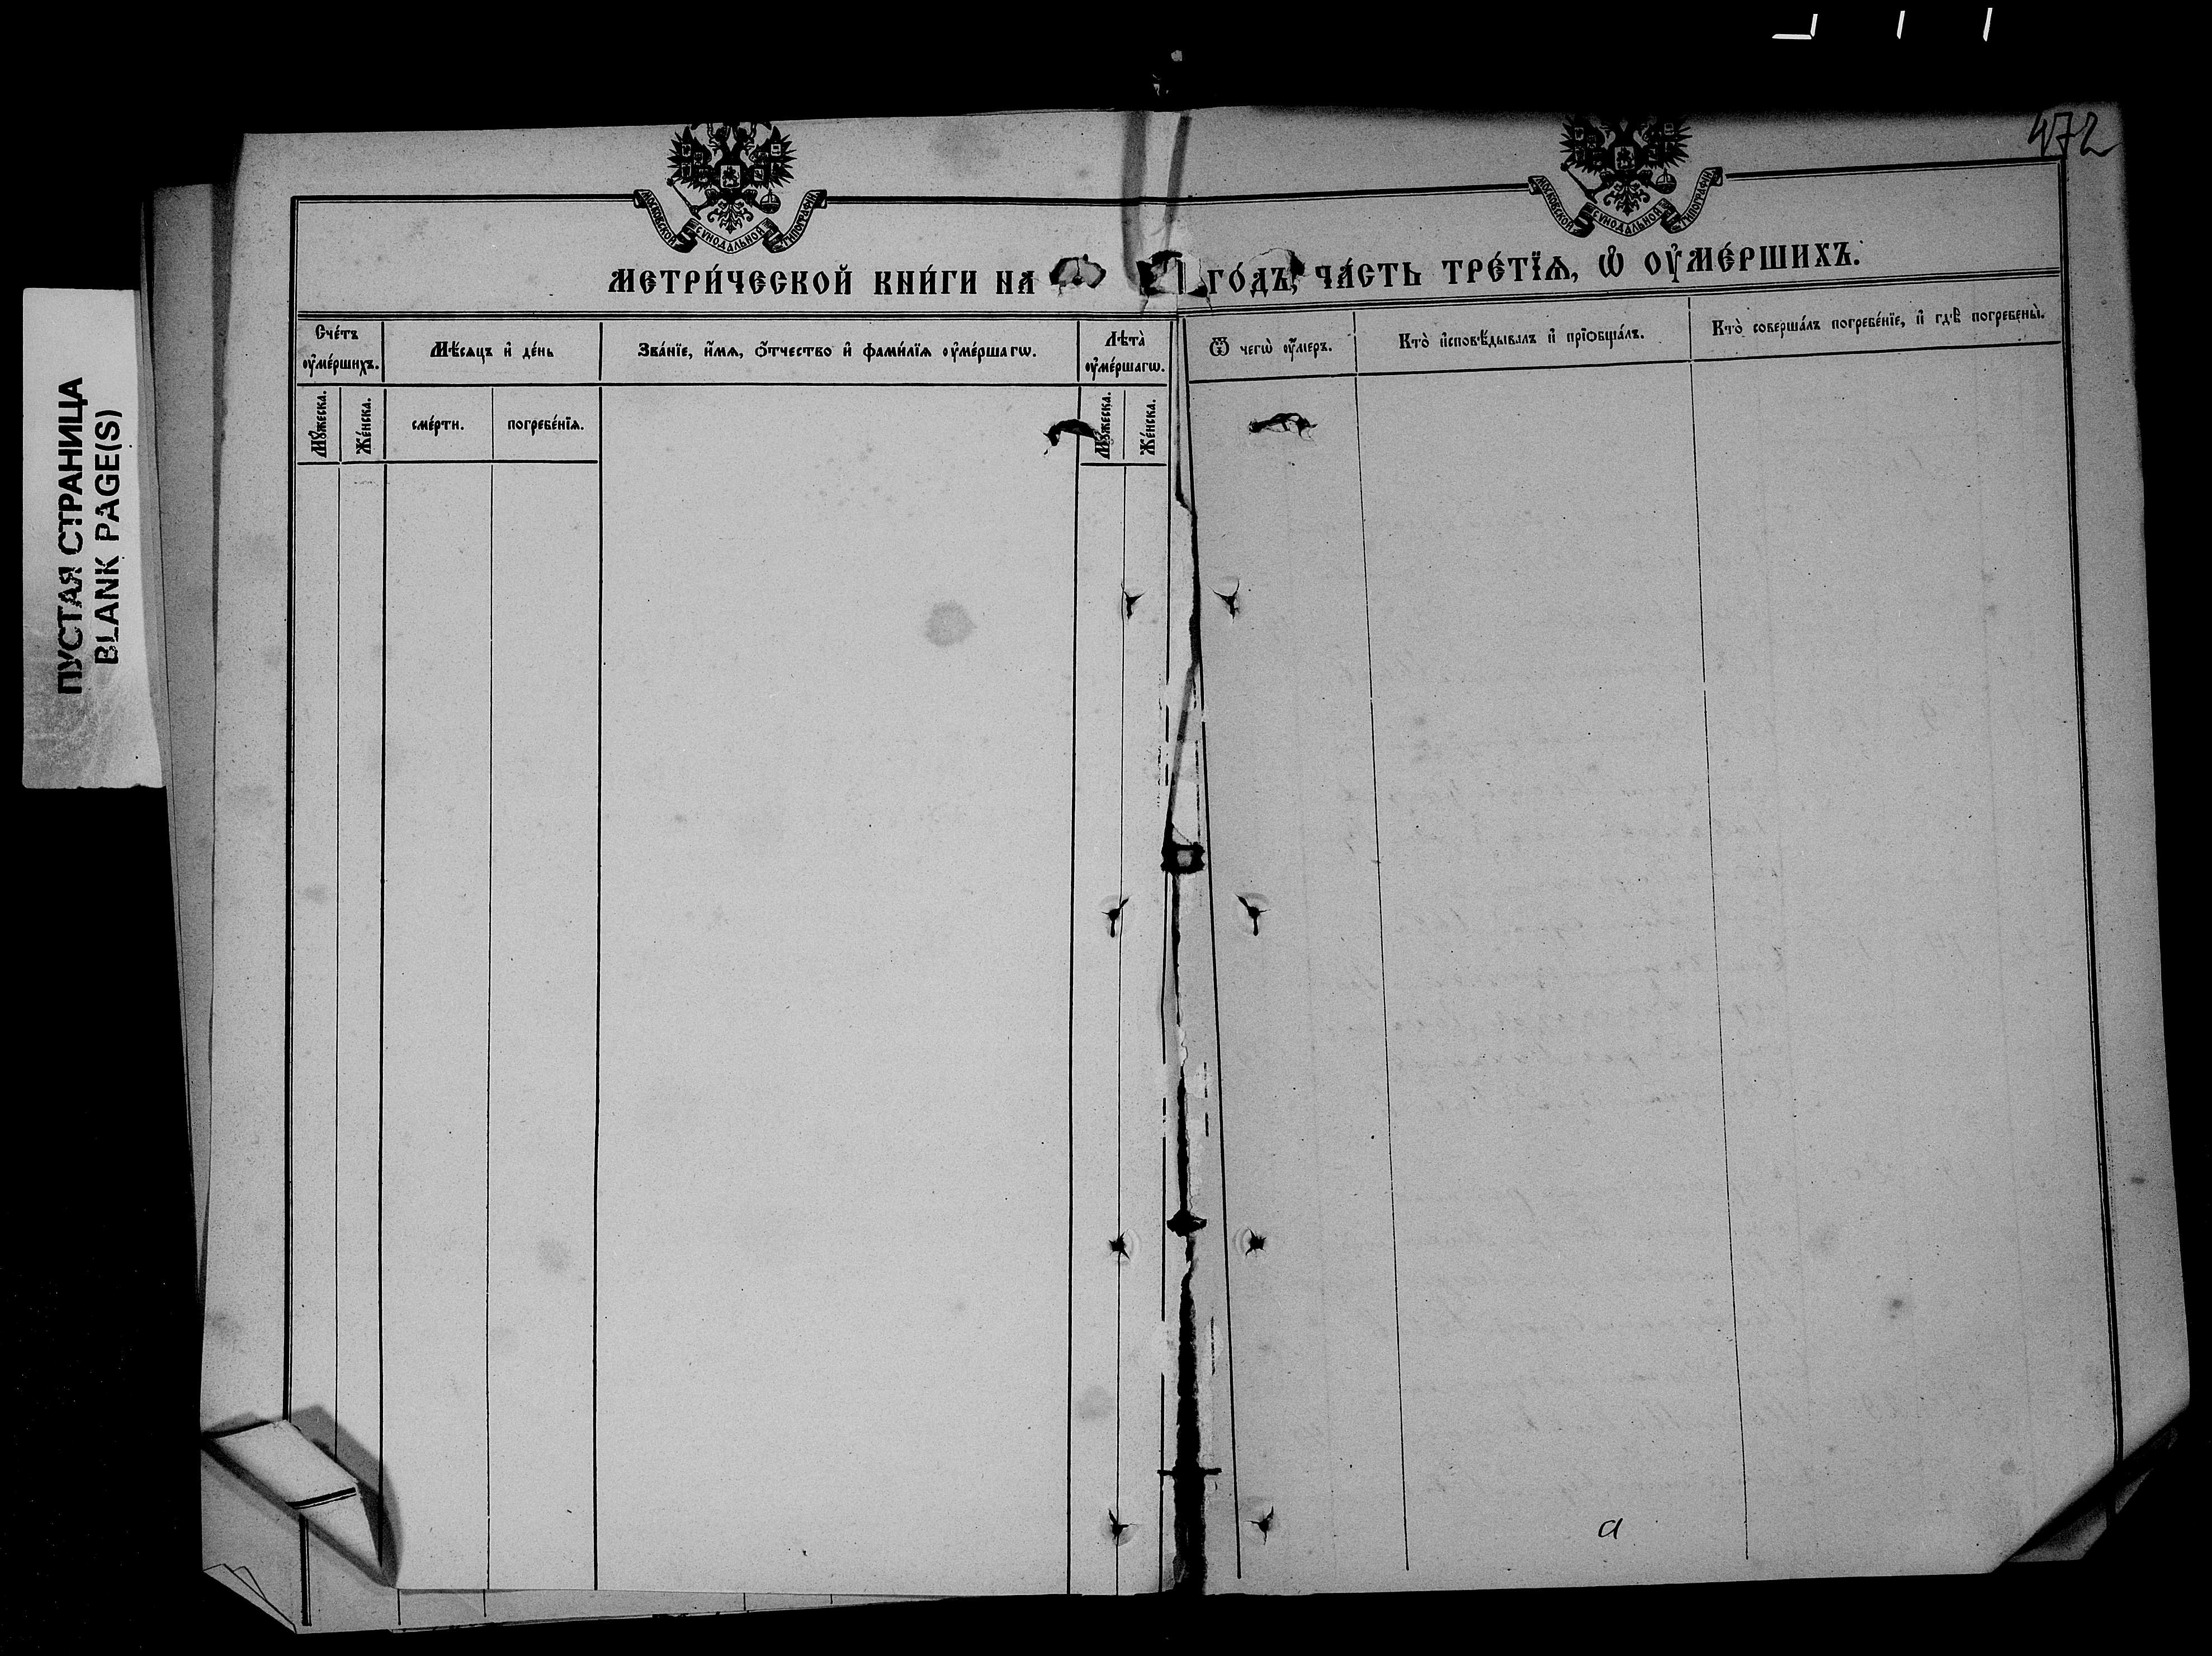 472
ПУСТАЯ СТРАНИЦА
BLANK PAGE(S)
МОСКОВСКОЙ СѴНОДАЛЬНОЙ ТИПОГРАФІИ
МОСКОВСКОЙ СѴНОДАЛЬНОЙ ТИПОГРАФІИ
МЕТРИ́ЧЕСКОЙ КНИ́ГИ НА ГО́ДЪ, ЧА́СТЬ ТРЕ́ТЇѦ, Ѡ҆ ОУ҆МЕ́РШИХЪ.
Сче́тъ
оу҆ме́ршихъ.
Мѣ́сяцъ и҆ де́нь
Зва́нїе, и҆́мѧ, ѻ҆́тчество и҆ фами́лїѧ оу҆ме́ршагѡ.
Лѣ́та
оу҆ме́ршагѡ.
Ѿ чегѡ̀ оу҆́меръ.
Кто̀ и҆сповѣ́дывалъ и҆ прїѡбща́лъ.
Кто̀ соверша́лъ погребе́нїе, и҆ гдѣ̀ погребены̀.
Мꙋ́жеска.
Же́нска.
сме́рти.
погребе́нїѧ.
Мꙋ́жеска.
Же́нска.